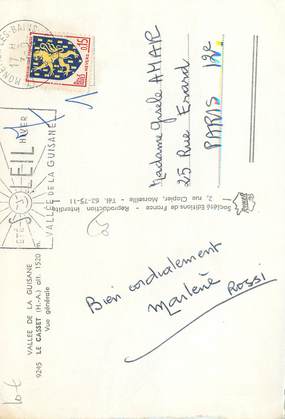 MONÊTIER-LES-BAINS
17 H
0,15
NEVERS
SOLEIL
ÉTÉ HIVER
VALLÉE DE LA GUISANE
VALLEE DE LA GUISANE
9245 LE CASSET (H.-A.) alt. 1520 m.
Vue générale
Société Editions de France - Reproduction interdite
2, rue Clapier, Marseille - Tél. 62-75-11
Bien cordialement
Marlène Rossi
Madame Gisele AMAR
25 Rue Erard
PARIS 12e